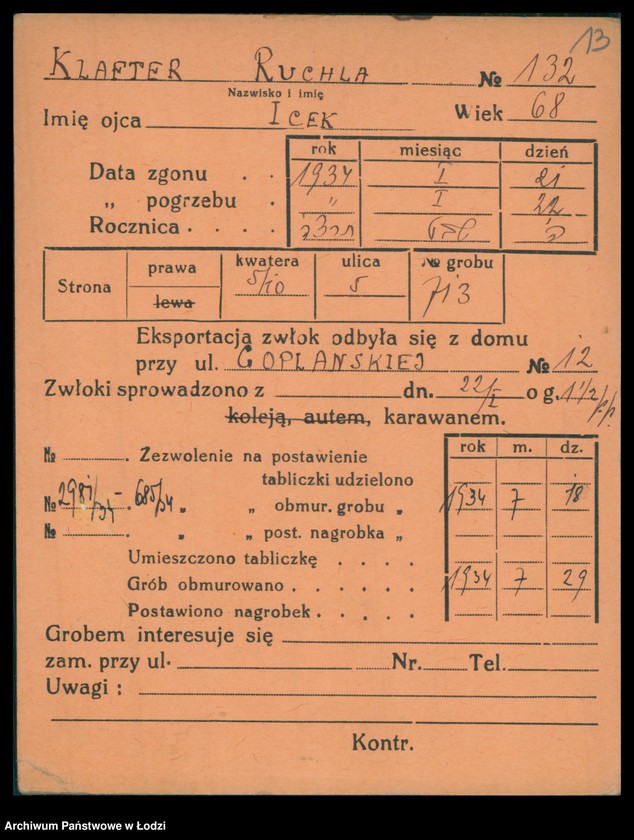 13
KLAFTER RUCHLA № 132
Nazwisko i imię
Imię ojca ICEK Wiek 68
rok miesiąc dzień
Data zgonu . . 1934 I 21
„ pogrzebu . „ I 22
Rocznica . . . .
Strona prawa kwatera ulica № grobu
lewa 5/10 5 713
Eksportacja zwłok odbyła się z domu
przy ul. GOPLANSKIEJ № 12
Zwłoki sprowadzono z dn. 22/I o g. 1 1/2 p/p.
koleją, autem, karawanem.
rok m. dz.
№ . Zezwolenie na postawienie
tabliczki udzielono
№ . 685/34 „ „ obmur. grobu „ 1934 7 18
№ . „ „ post. nagrobka „
Umieszczono tabliczkę . . . .
Grób obmurowano . . . . . 1934 7 29
Postawiono nagrobek . . . . .
Grobem interesuje się
zam. przy ul. Nr. Tel.
Uwagi :
Kontr.
Archiwum Państwowe w Łodzi